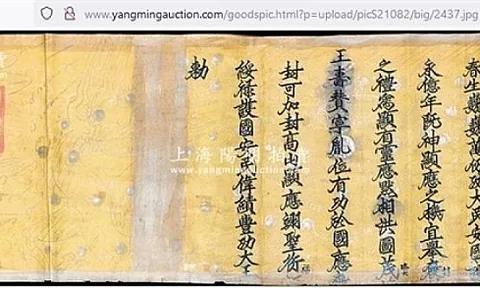 www.yangmingauction.com/goodspic.html?p=upload/picS21082/big/2437.jpg
春生巍巍萬功大民安國
永億年既神顯應之稱宜舉
之禮顯有靈應默相洪圖茂
王壽贊寧胤位有功於國應
封可加封高山顯應聖衍
綏祿護國安民偉績豐功大王
敕
上海陽明拍賣
www.yangmingauction.com